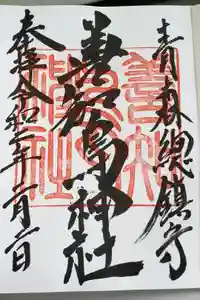 青森總鎮守
善知鳥神社
奉拝令和二年
善知鳥神社